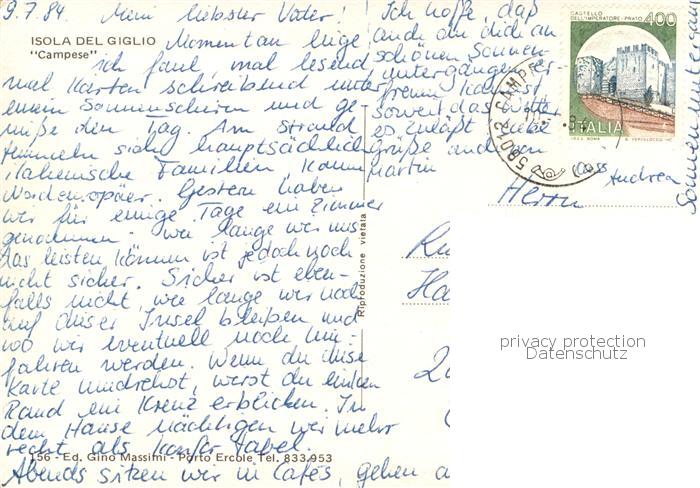 9.7.84 Mein liebster Vater!
ISOLA DEL GIGLIO
"Campese"
Momentan liege
ich faul, mal lesend
mal Karten schreibend unter
einem Sonnenschirm und ge-
nieße den Tag. Am Strand
tummeln sich hauptsächlich
italienische Familien, kaum
Nordeuropäer. Gestern haben
wir für einige Tage ein Zimmer
genommen. Wie lange wir uns
das leisten können ist jedoch noch
nicht sicher. Sicher ist eben-
falls nicht, wie lange wir noch
auf dieser Insel bleiben und
wo wir eventuell noch hin-
fahren werden. Wenn du diese
Karte umdrehst, wirst du am linken
Rand ein Kreuz erblicken. In
dem Hause nächtigen wir mehr
recht als komfortabel.
156 - Ed. Gino Massimi - Porto Ercole Tel. 833.953
Abends sitzen wir in Cafés, gehen a
Ich hoffe, daß
auch du dich an
schönen Sonnen-
untergängen er-
freuen kannst
soweit das Wetter
es zuläßt. Liebe
Grüße auch von
Martin
Andrea
Riproduzione vietata
CASTELLO
DELL'IMPERATORE-PRATO 400
ITALIA
58012 CAMPE
Herrn
Ru
Ha
privacy protection
Datenschutz